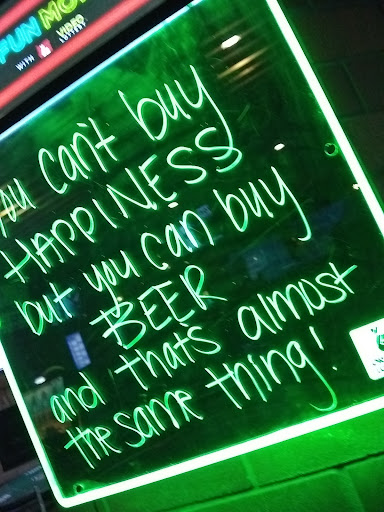 FUN MO
WITH VIDEO LOTTERY
You can't buy
HAPPINESS
but you can buy
BEER
and that's almost
the same thing!